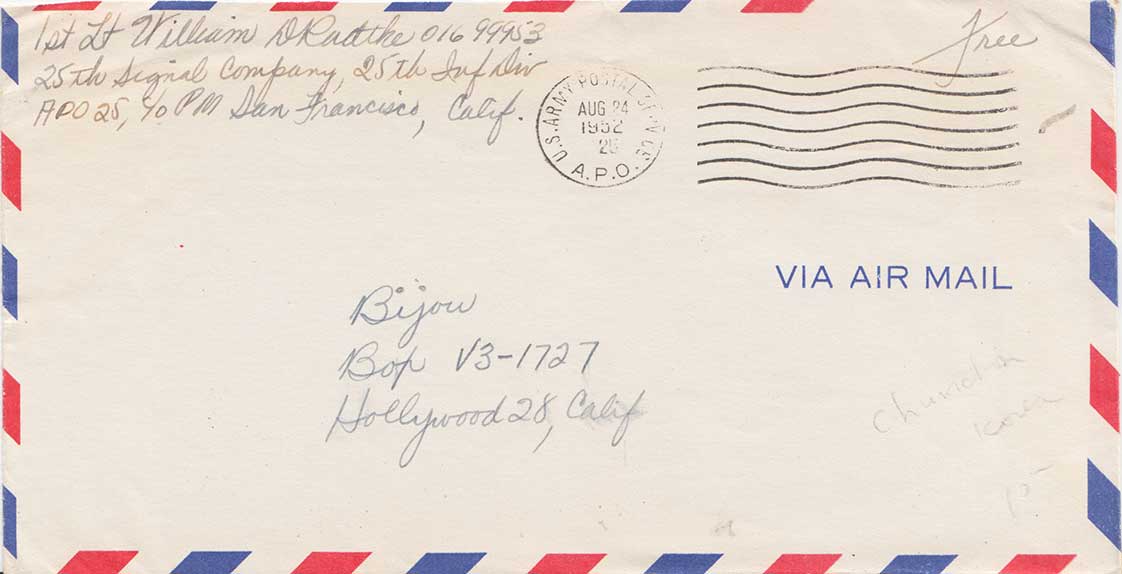 1st Lt William D Radtke 01699953
25th Signal Company, 25th Inf Div
APO 25, c/o PM San Francisco, Calif.
Free
U.S. ARMY POSTAL SERVICE
AUG 24
1952
25
A.P.O.
VIA AIR MAIL
Bijou
Box V3-1727
Hollywood 28, Calif
Korea